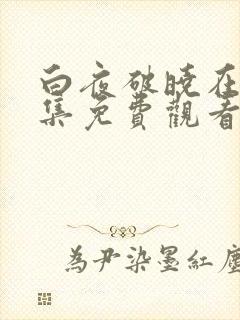 白夜破曉在
集免費觀看
為尹染墨紅塵